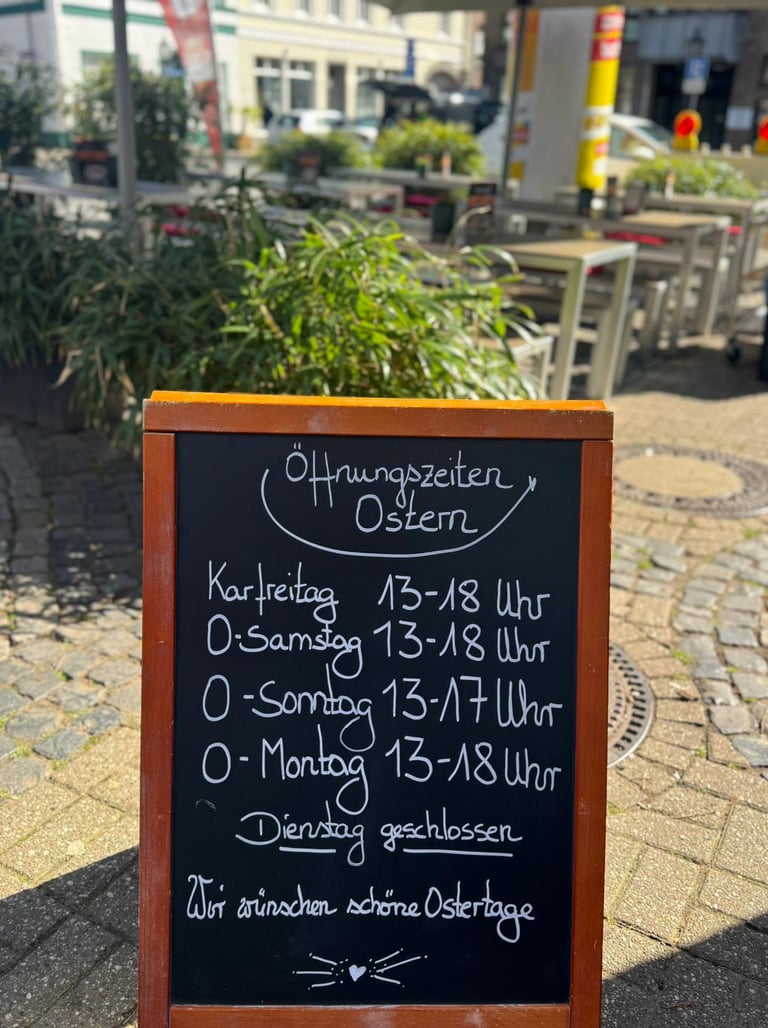 Öffnungszeiten
Ostern
Karfreitag 13-18 Uhr
O-Samstag 13-18 Uhr
O-Sonntag 13-17 Uhr
O-Montag 13-18 Uhr
Dienstag geschlossen
Wir wünschen schöne Ostertage